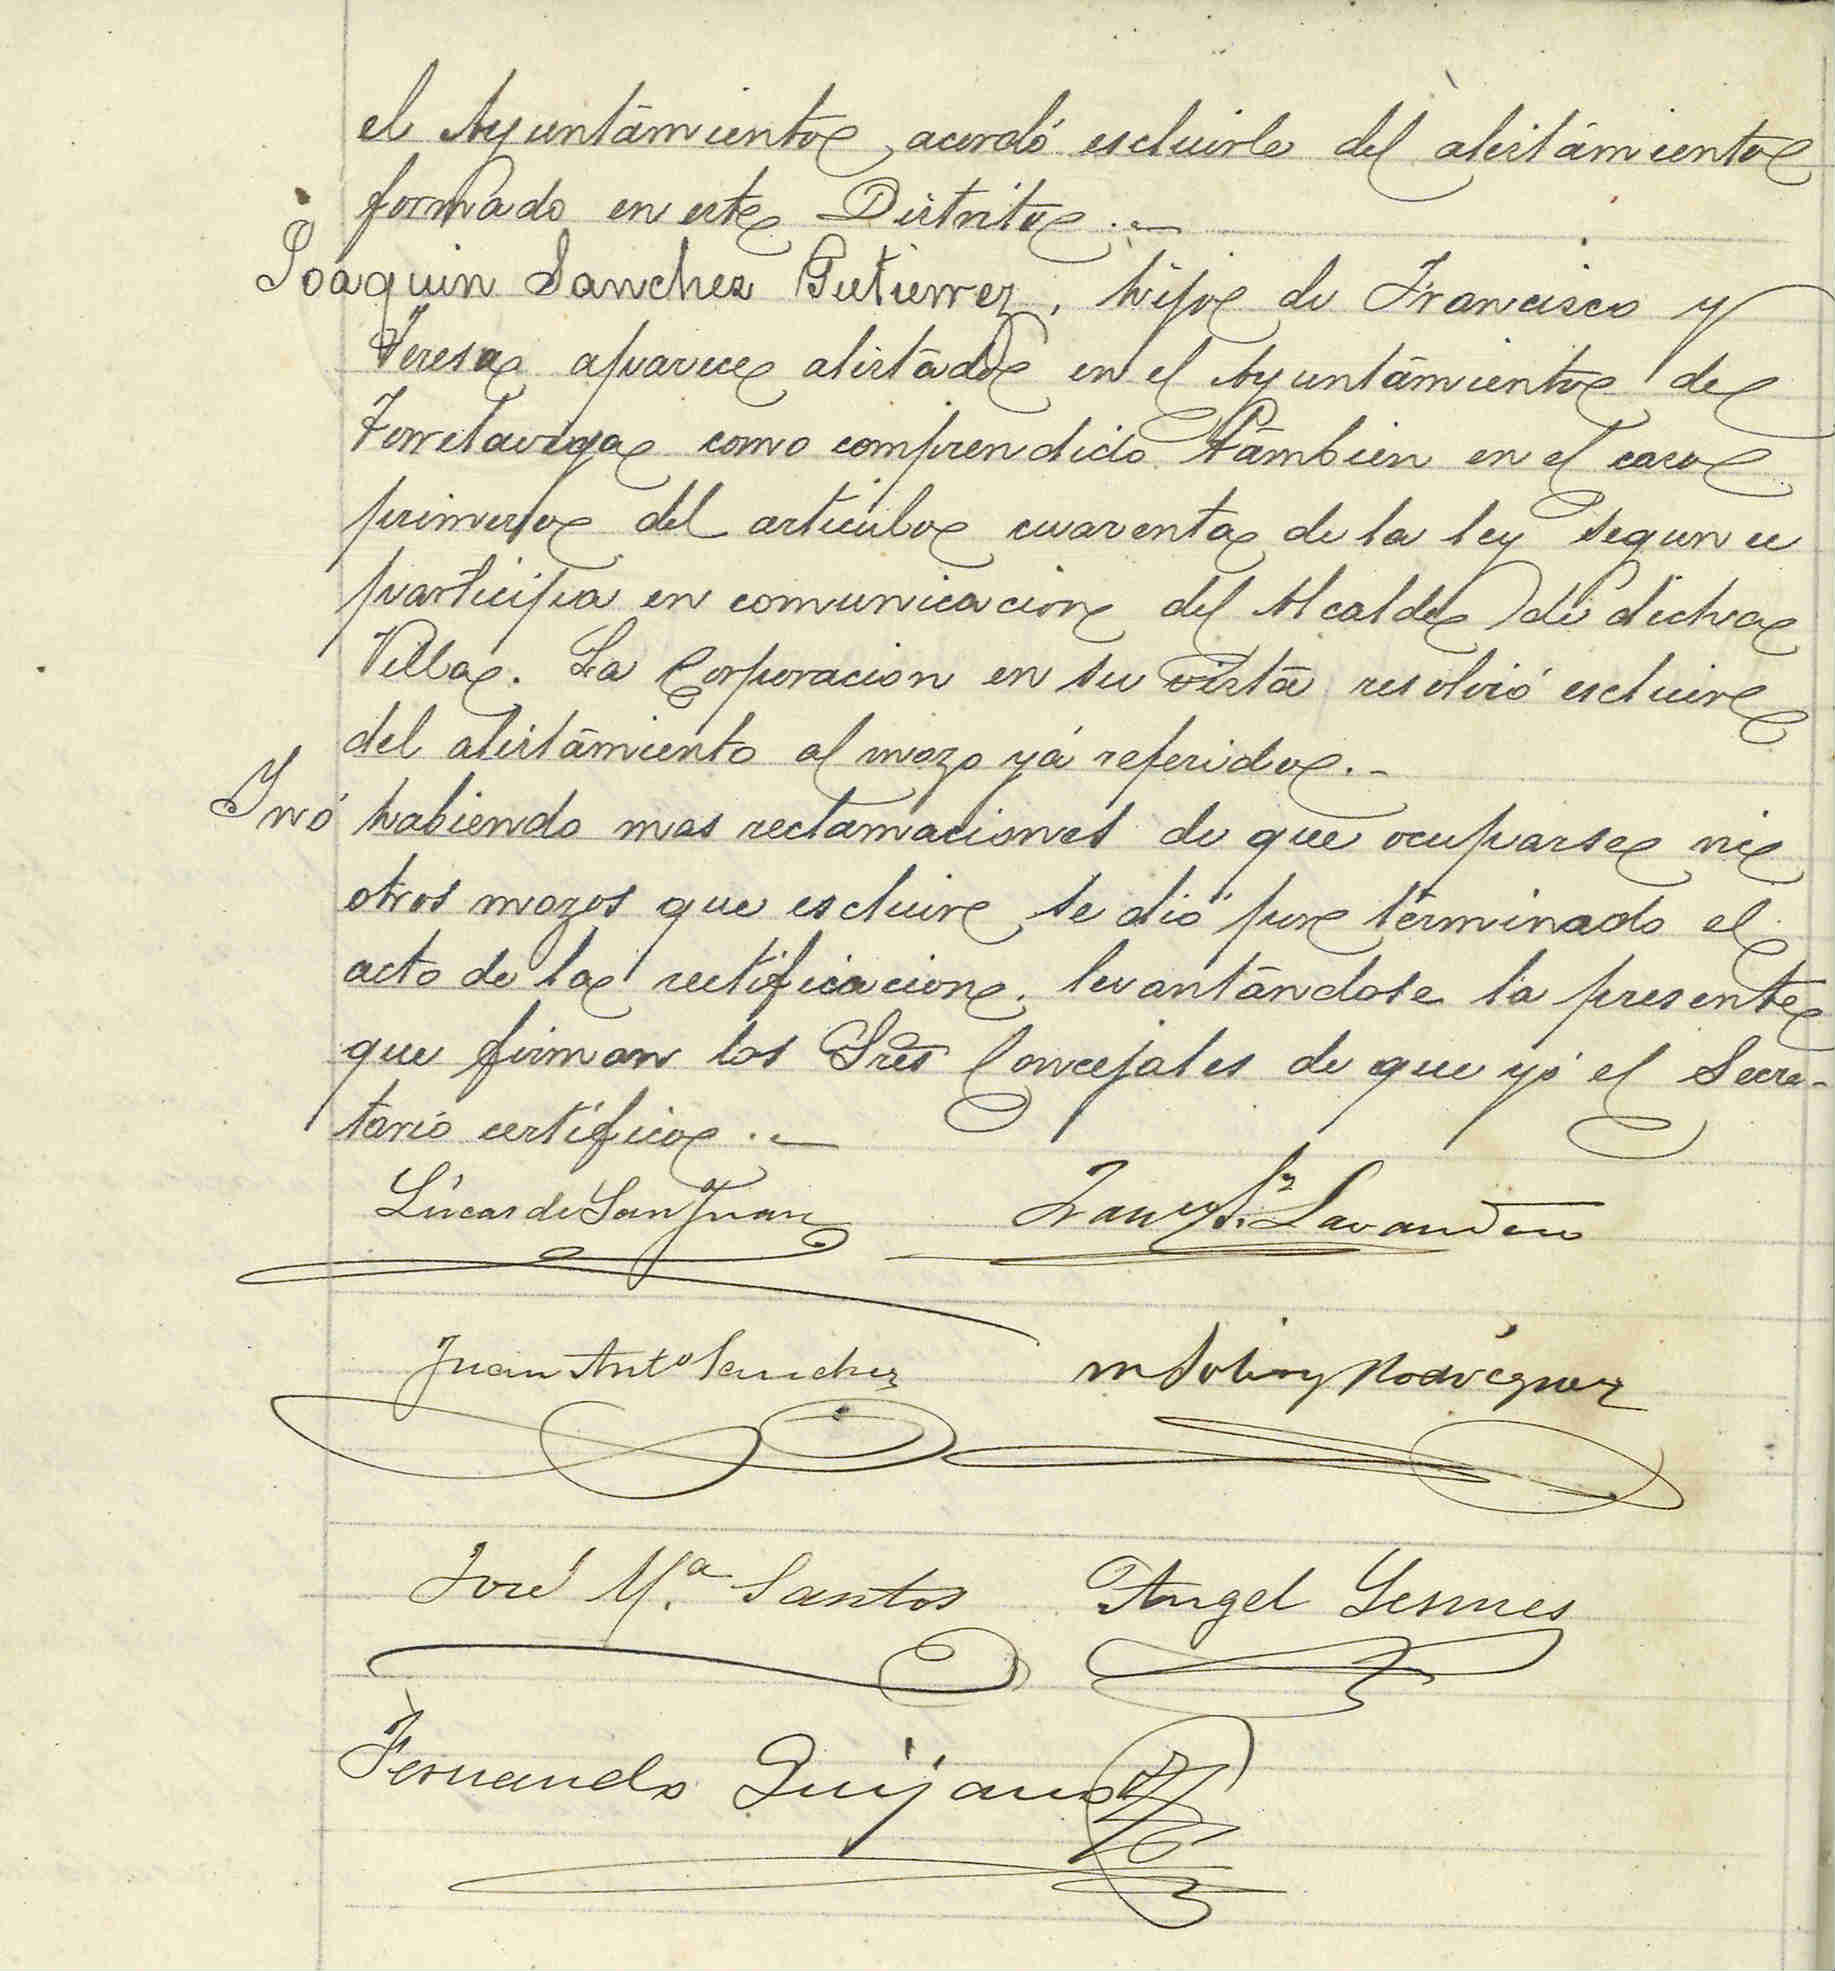 el Ayuntamiento, acordó escluirle del alistamiento
formado en este Distrito.
Joaquin Sanchez Gutierrez, hijo de Francisco y
Teresa aparece alistado en el Ayuntamiento de
Torrelavega como comprendido tambien en el caso
primero del articulo cuarenta de la ley segun se
participa en comunicacion del Alcalde de dicha
Villa. La Corporacion en su vista resolvió escluir
del alistamiento al mozo yá referido.
Y nó habiendo mas reclamaciones de que ocuparse ni
otros mozos que escluir se dió por terminado el
acto de la rectificacion, levantándose la presente
que firman los Sres Concejales de que yó el Secre-
tario certifico.
Lúcas de San Juan
Lavandero
Juan Antº Sanchez
Rodriguez
José M.ª Santos Angel Lesmes
Fernando Quijano